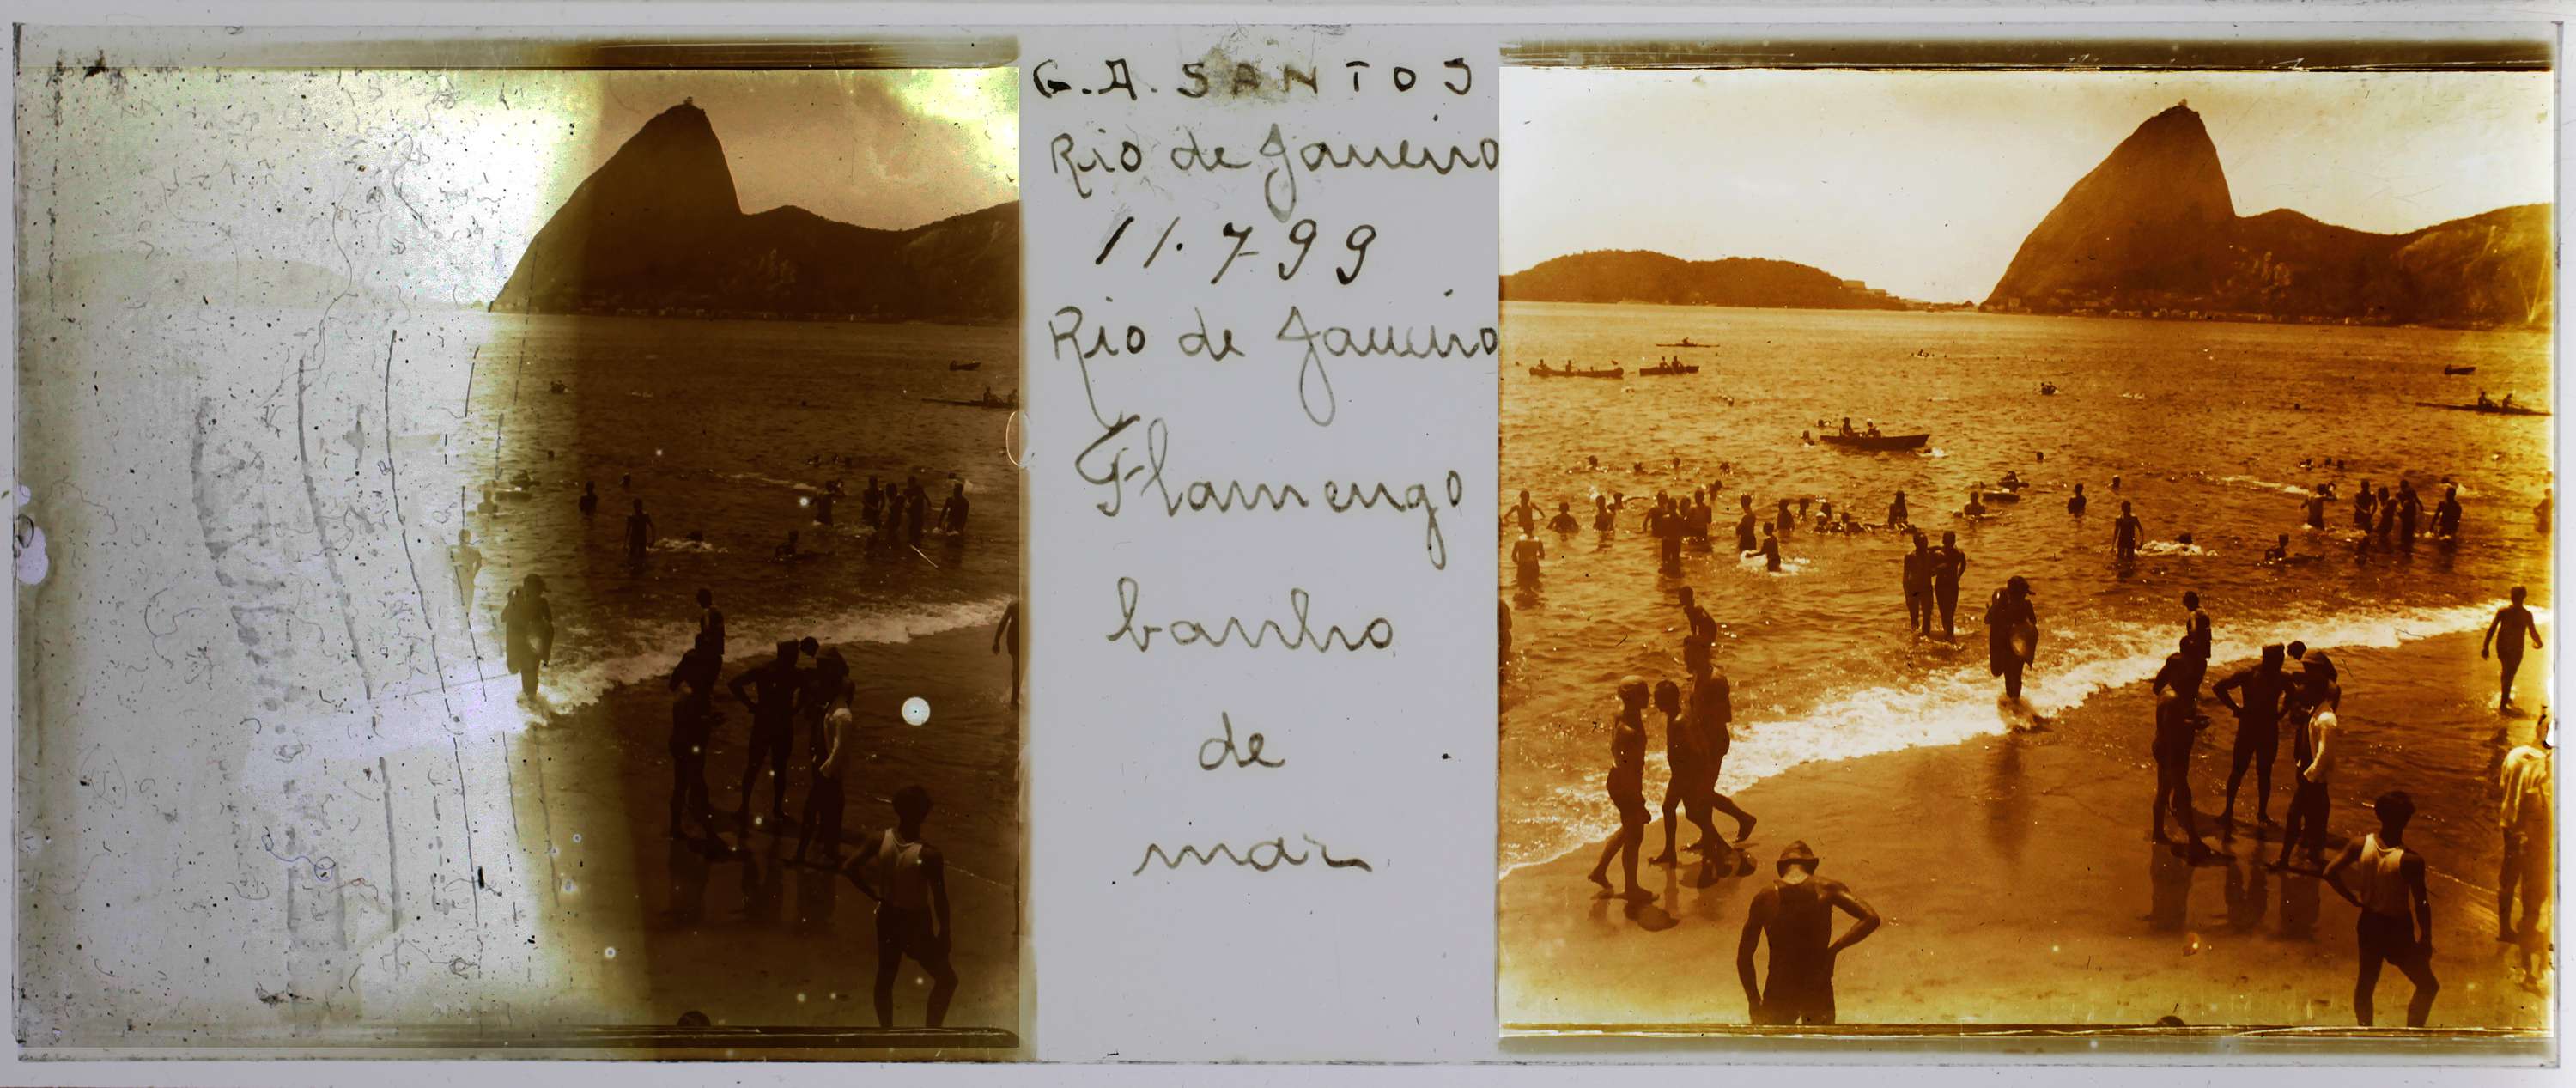 G.A. SANTOS
Rio de Janeiro
11.799
Rio de Janeiro
Flamengo
banho
de
mar